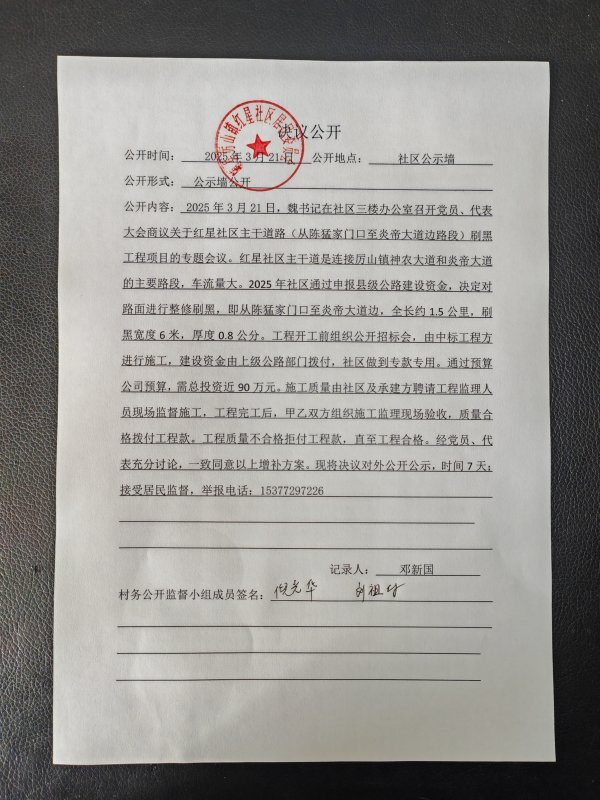 决议公开
公开时间： 2025年3月21日 公开地点： 社区公示墙
公开形式： 公示墙公开
公开内容：2025年3月21日，魏书记在社区三楼办公室召开党员、代表
大会商议关于红星社区主干道路（从陈猛家门口至炎帝大道边路段）刷黑
工程项目的专题会议。红星社区主干道是连接厉山镇神农大道和炎帝大道
的主要路段，车流量大。2025年社区通过申报县级公路建设资金，决定对
路面进行整修刷黑，即从陈猛家门口至炎帝大道边，全长约1.5公里，刷
黑宽度6米，厚度0.8公分。工程开工前组织公开招标会，由中标工程方
进行施工，建设资金由上级公路部门拨付，社区做到专款专用。通过预算
公司预算，需总投资近90万元。施工质量由社区及承建方聘请工程监理人
员现场监督施工，工程完工后，甲乙双方组织施工监理现场验收，质量合
格拨付工程款。工程质量不合格拒付工程款，直至工程合格。经党员、代
表充分讨论，一致同意以上增补方案。现将决议对外公开公示，时间7天；
接受居民监督，举报电话：15377297226
记录人： 邓新国
村务公开监督小组成员签名：倪光华 刘祖付
厉山镇红星社区居民委员会